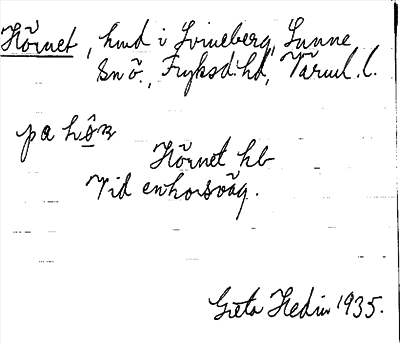 Hörnet, hmd i Svineberg, Sunne
Sn ö., Fryksd. hd, Värml. l.
på hö̱ɳ
Hörnet hb
Vid en korsväg.
Greta Hedin 1935.